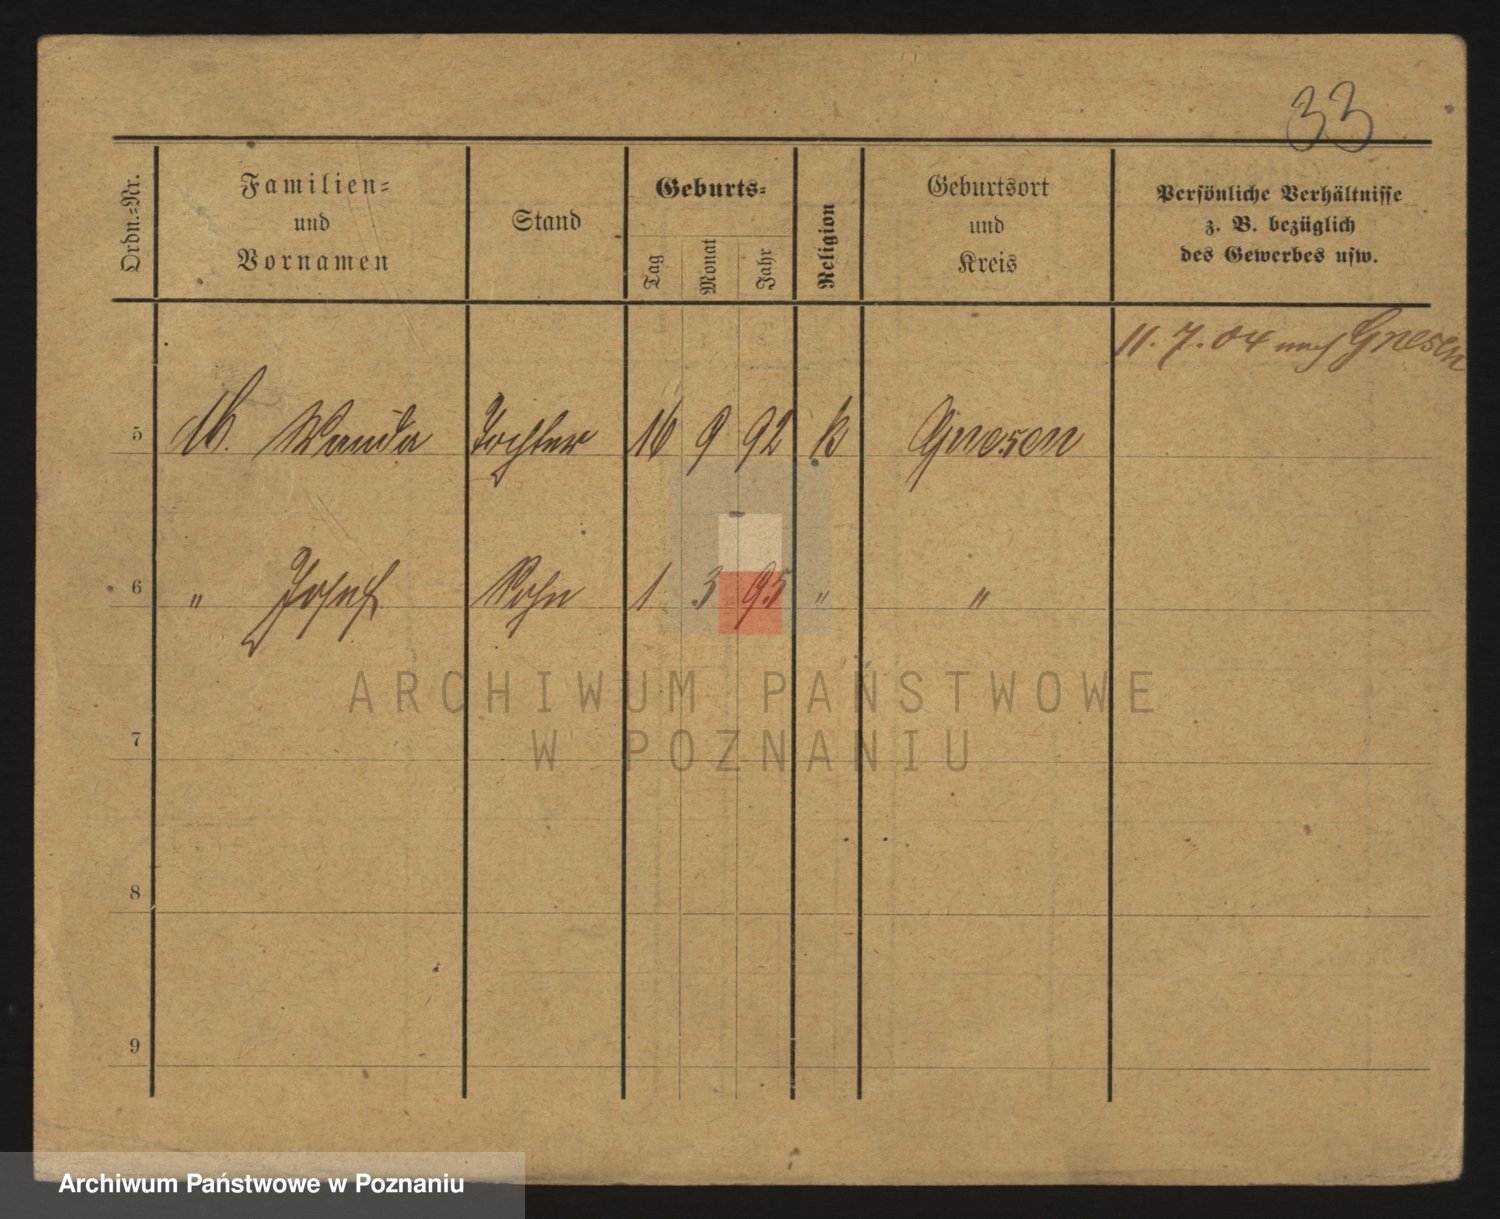 33
Ordn.-Nr.
Familien-
und
Vornamen
Stand
Geburts-
Tag
Monat
Jahr
Religion
Geburtsort
und
Kreis
Persönliche Verhältnisse
z. B. bezüglich
des Gewerbes usw.
11. 7. 04 nach Gnesen
5 Wanda Tochter 16 9 92 k Gnesen
6 " Josef Sohn 1 3 95 " "
ARCHIWUM PAŃSTWOWE
W POZNANIU
7
8
9
Archiwum Państwowe w Poznaniu